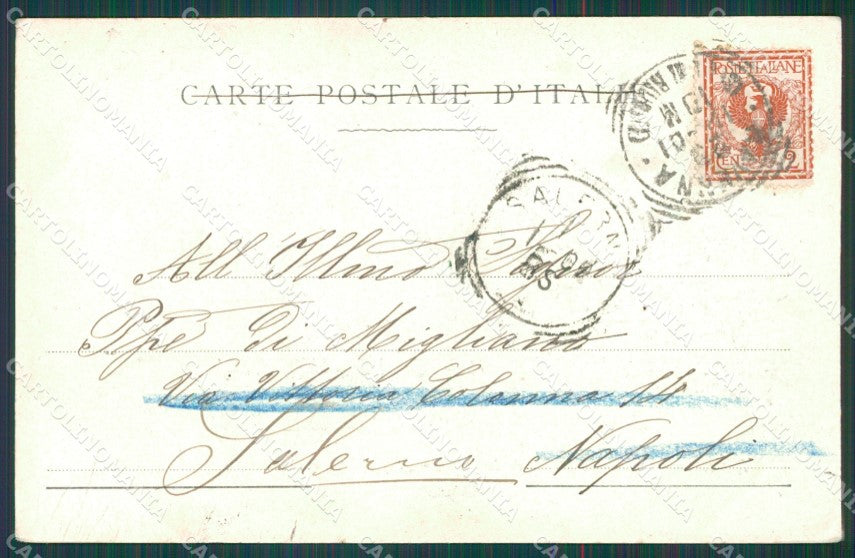 CARTE POSTALE D'ITALIE
POSTE ITALIANE
CENT 2
SALERN
All' Illmo Signor
Ppè di Migliano
Via Vittoria Colonna 14
Salerno Napoli
CARTOLINOMANIA